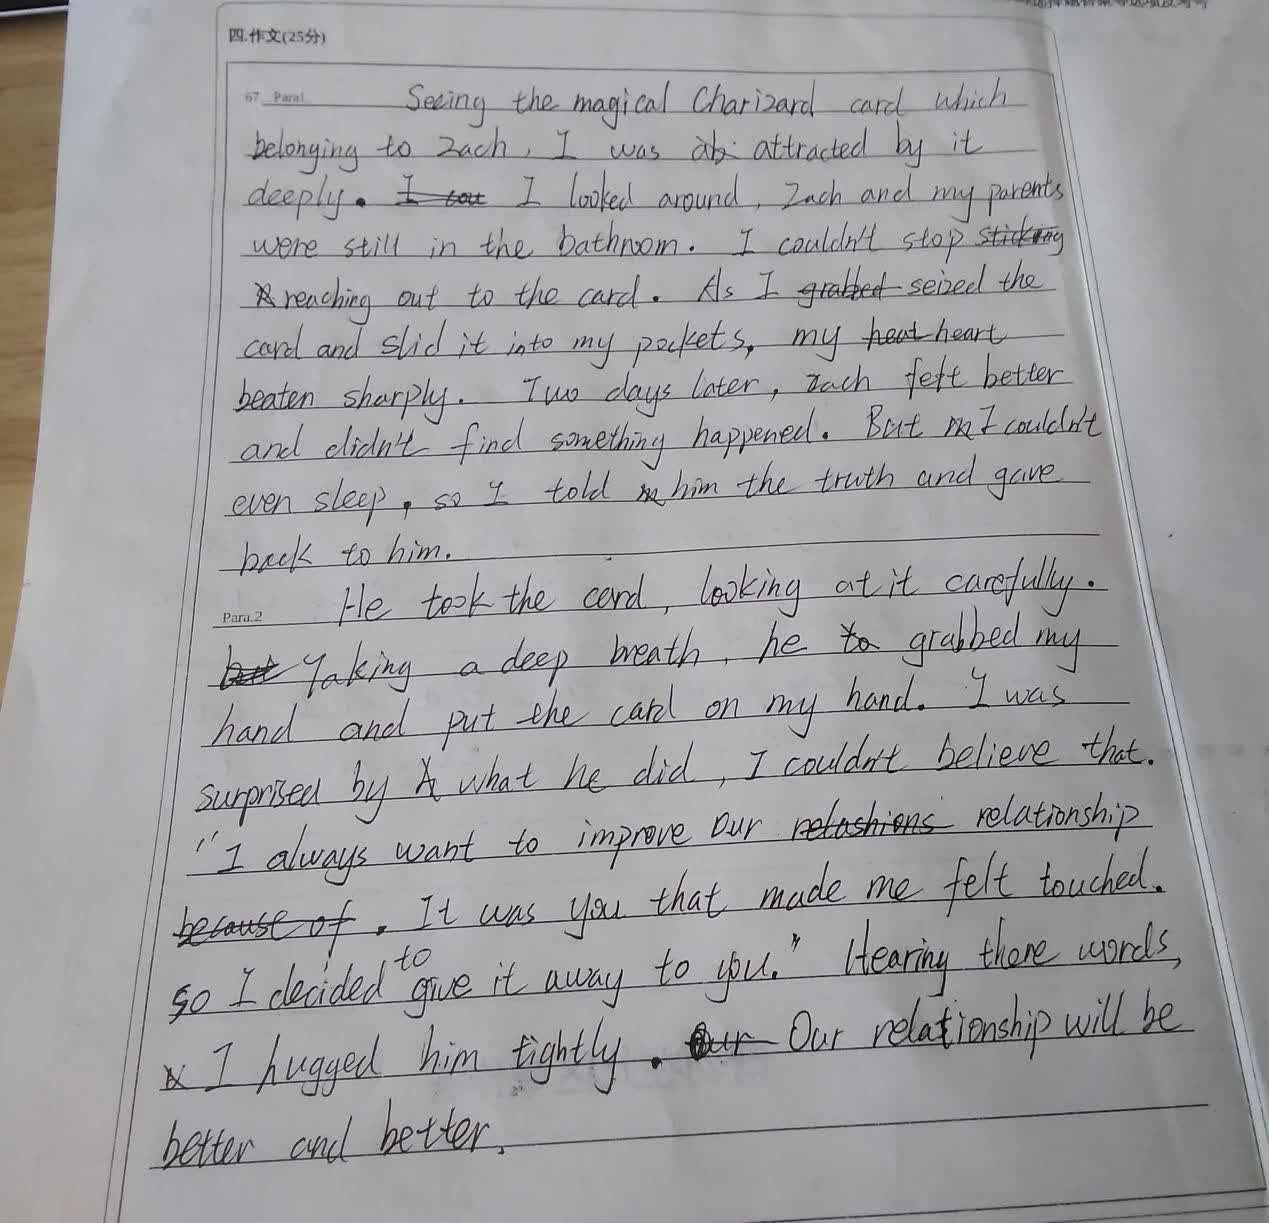 四.作文(25分)
67 Para1 Seeing the magical Charizard card which
belonging to Zach, I was ab attracted by it
deeply. I cou I looked around, Zach and my parents
were still in the bathroom. I couldn't stop sticking
reaching out to the card. As I grabbed seized the
card and slid it into my pockets, my heat heart
beaten sharply. Two days later, Zach felt better
and didn't find something happened. But m I couldn't
even sleep, so I told him the truth and gave
back to him.
Para.2 He took the card, looking at it carefully.
but Taking a deep breath, he to grabbed my
hand and put the card on my hand. I was
surprised by what he did, I couldn't believe that.
"I always want to improve our relashions relationship
because of. It was you that made me felt touched.
so I decided to give it away to you." Hearing there words,
I hugged him tightly. Our Our relationship will be
better and better.